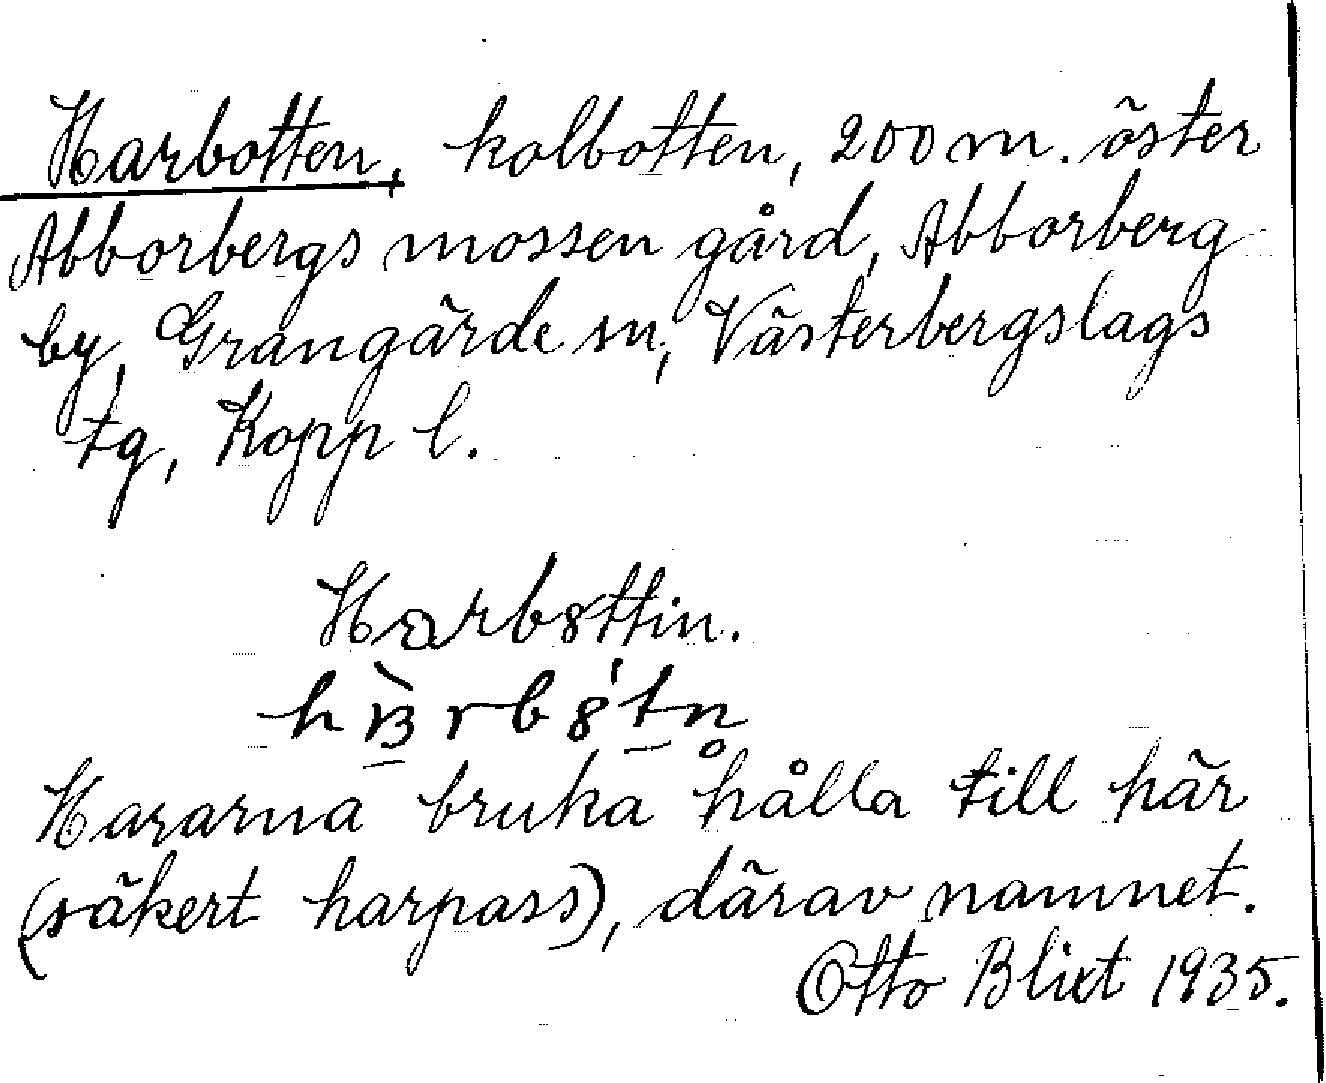 Harbotten, kolbotten, 200 m. öster
Abborbergs mossen gård, Abborberg
by, Grangärde sn, Västerbergslags
tg, Kopp l.
Harb8ttin.
Hararna bruka hålla till här
(säkert harpass), därav namnet.
Otto Blixt 1935.